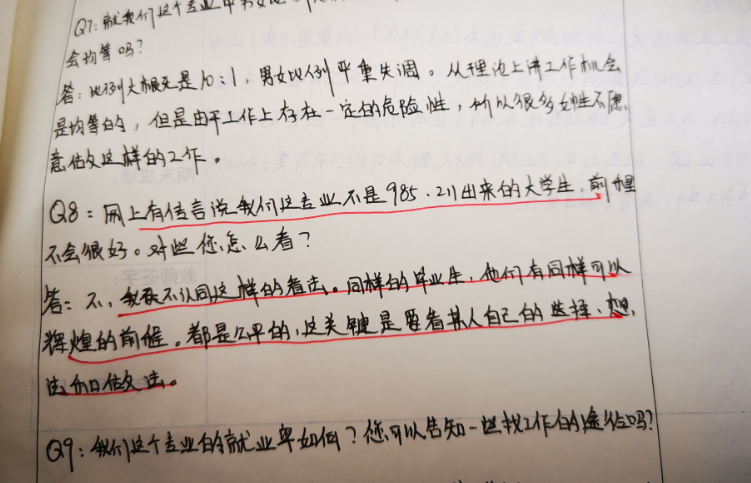 Q7：就我们这个专业中男女比例
会均等吗？
答：比例大概是10：1，男女比例严重失调。从理论上讲工作机会
是均等的，但是由于工作上存在一定的危险性，所以很多女性不愿
意做这样的工作。
Q8：网上有传言说我们这专业不是985、211出来的大学生，前程
不会很好。对此您怎么看？
答：不，我不认同这样的看法。同样的毕业生，他们有同样可以
辉煌的前程。都是公平的，这关键是要看其人自己的选择、想
法和做法。
Q9：我们这个专业的就业率如何？您可以告知一些找工作的途径吗？